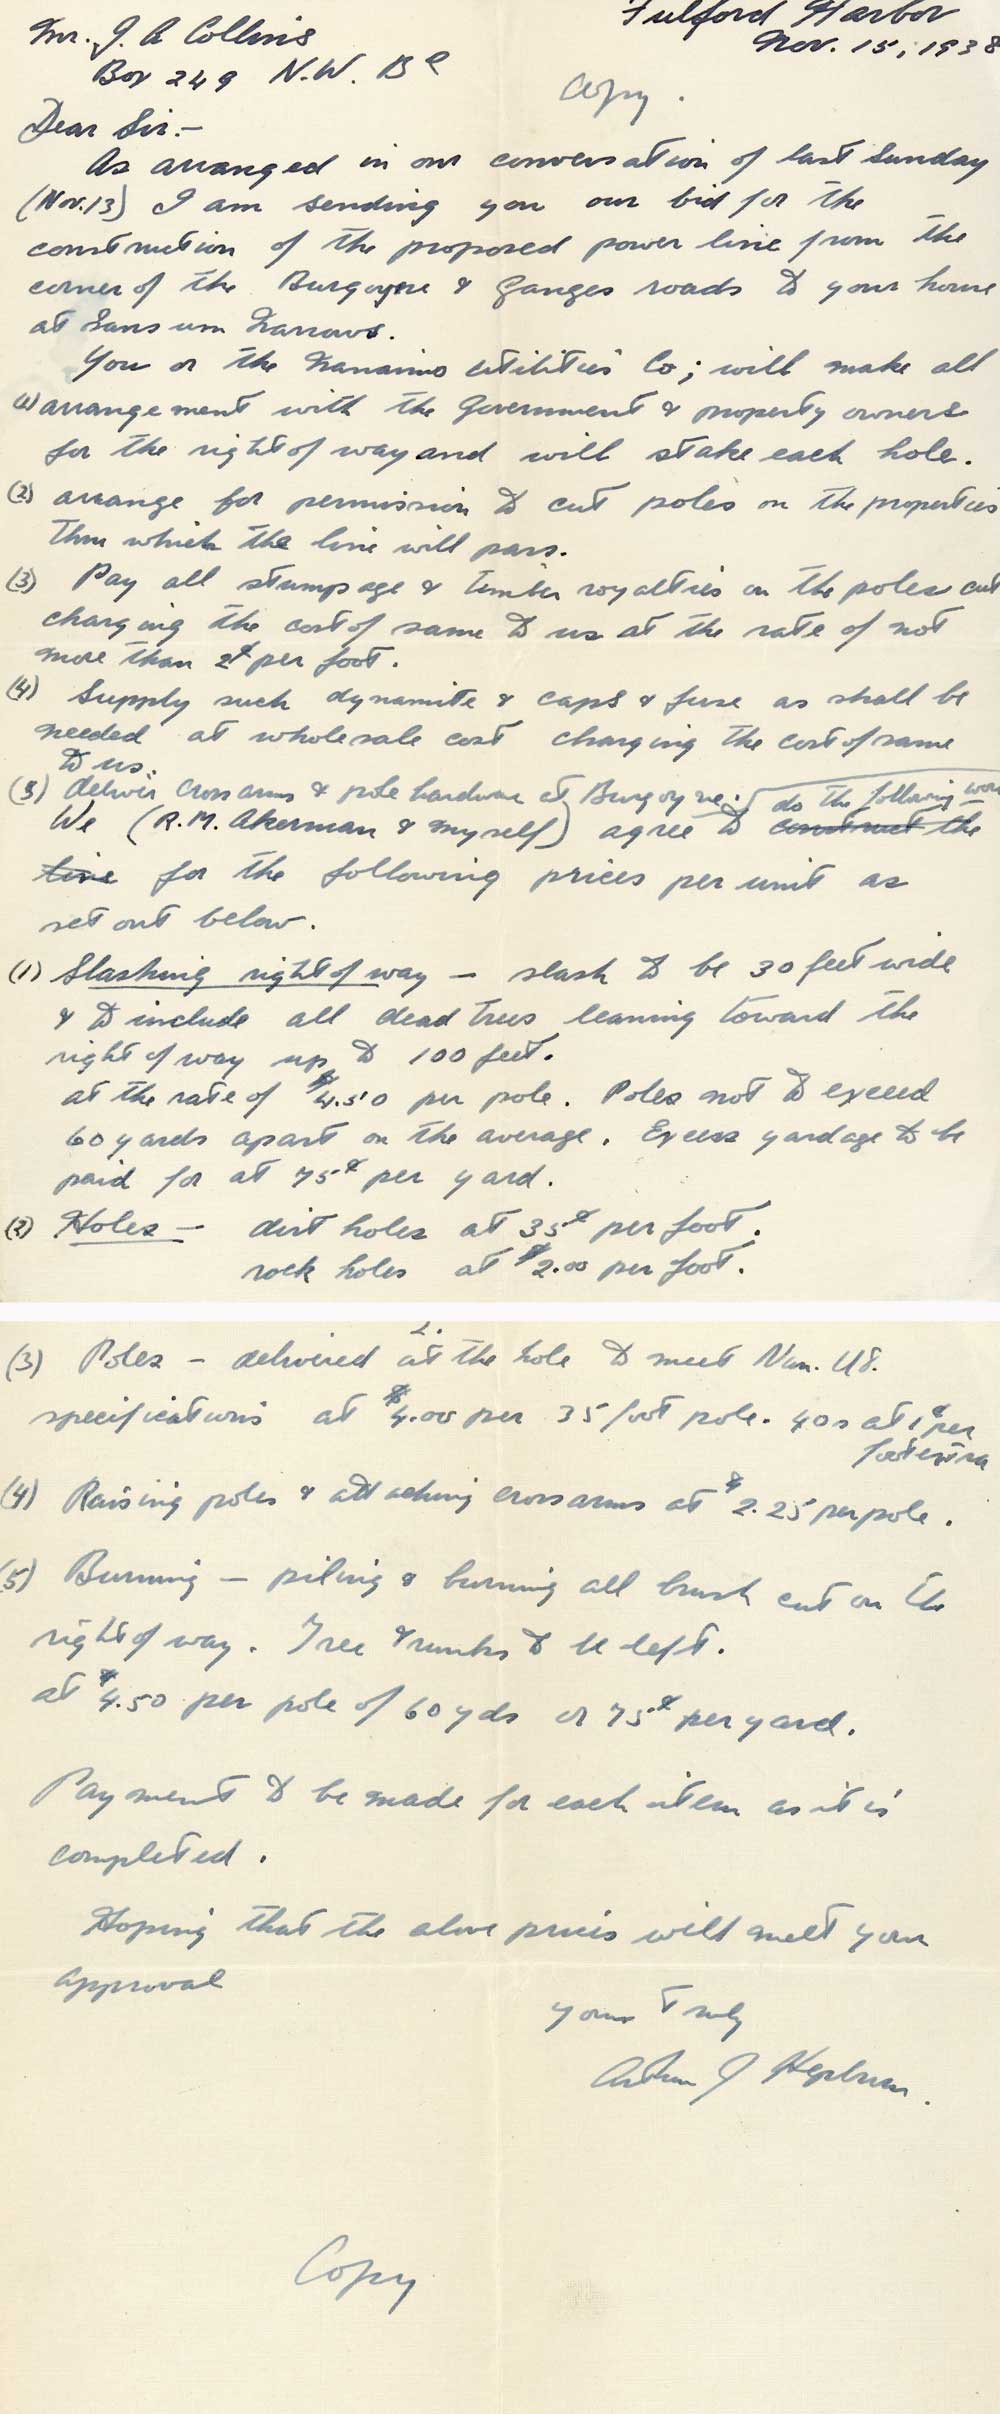 Fulford Harbor
Mr. J. A Collins
Nov. 15, 1938
Box 249 N.W. BC
Copy.
Dear Sir:-
As arranged in our conversation of last Sunday
(Nov. 13) I am sending you our bid for the
construction of the proposed power line from the
corner of the Burgoyne & Ganges roads to your home
at Sansum Narrows.
You or the Nanaimo Utilities Co; will make all
(1) arrangement with the Government & property owners
for the right of way and will stake each hole.
(2) arrange for permission to cut poles on the properties
thru which the line will pass.
(3) Pay all stumpage & timber royalties on the poles cut
charging the cost of same to us at the rate of not
more than 2¢ per foot.
(4) Supply such dynamite & caps & fuse as shall be
needed at wholesale cost charging the cost of same
to us.
(5) deliver crossarms & pole hardware at Burgoyne. do the following work
We (R.M. Akerman & myself) agree to construct the
line for the following prices per unit as
set out below.
(1) Slashing right of way - slash to be 30 feet wide
& to include all dead trees leaning toward the
right of way up to 100 feet.
at the rate of $4.50 per pole. Poles not to exceed
60 yards apart on the average. Excess yardage to be
paid for at 75¢ per yard.
(2) Holes - dirt holes at 35¢ per foot.
rock holes at $2.00 per foot.
2.
(3) Poles - delivered at the hole to meet Nan. Ut.
specifications at $4.00 per 35 foot pole. 40s at 1¢ per
foot extra
(4) Raising poles & attaching crossarms at $2.25 per pole.
(5) Burning - piling & burning all brush cut on the
right of way. Tree trunks to be left.
at $4.50 per pole of 60 yds or 75¢ per yard.
Payment to be made for each item as it is
completed.
Hoping that the above prices will meet your
approval
yours truly
Arthur J Hepburn.
Copy